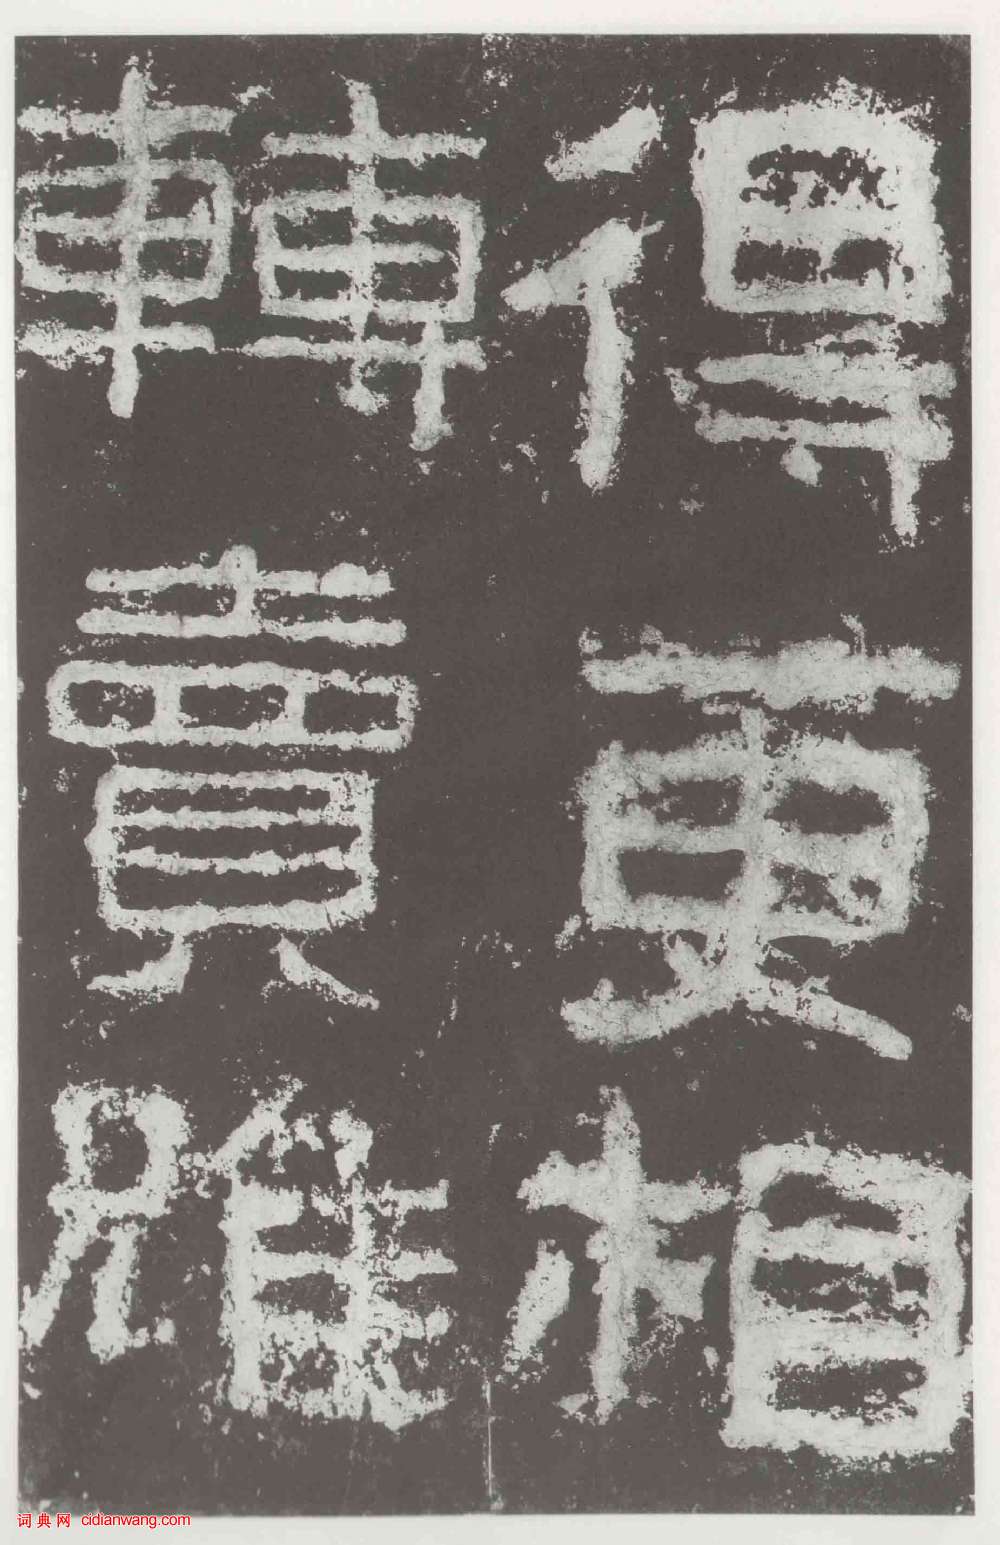 得更相
轉賣雖
词典网 cidianwang.com